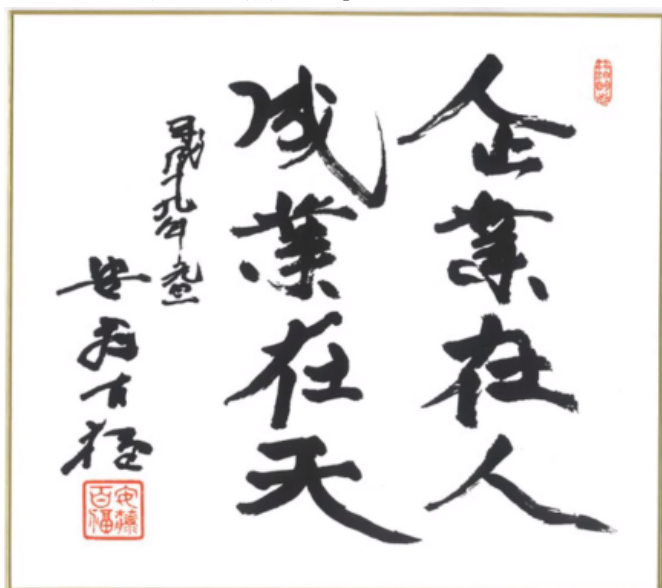 企業在人
成業在天
平成十九年
安藤百福
安藤
百福